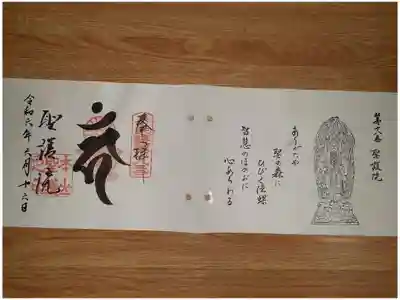 第十八番 聖護院
ありがたや
聖の森に
ひびく法螺
智慧のほのおに
心あらわる
奉拝
聖護院
令和六年 月十六日